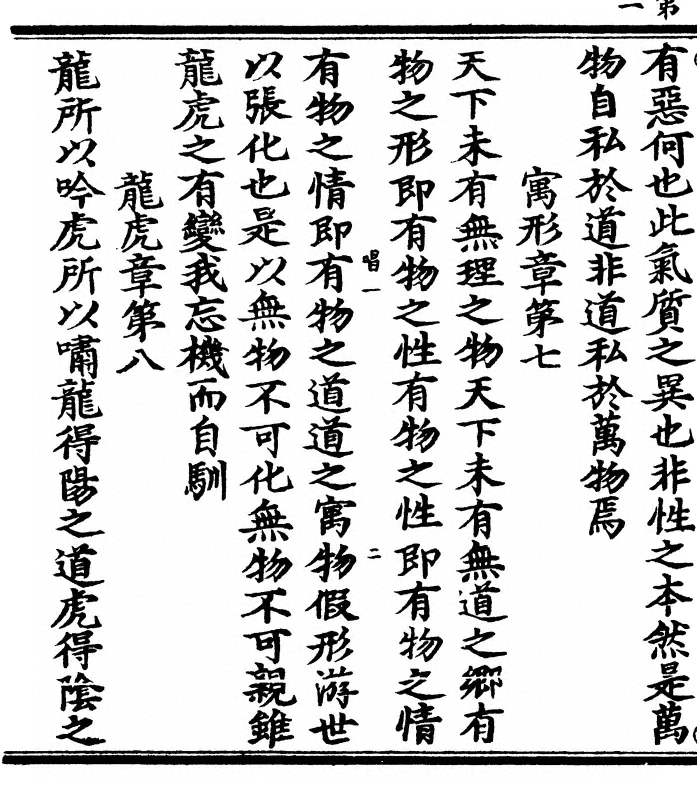 第一
有惡何也此氣质之異也非性之本然是萬
物自私於道非道私於萬物焉
寓形章第七
天下未有無理之物天下未有無道之鄉有
物之形即有物之性有物之性即有物之情
唱一
二
有物之情即有物之道道之寓物假形游世
以張化也是以無物不可化無物不可親雖
龍虎之有變我忘機而自馴
龍虎章第八
龍所以吟虎所以嘯龍得陽之道虎得陰之